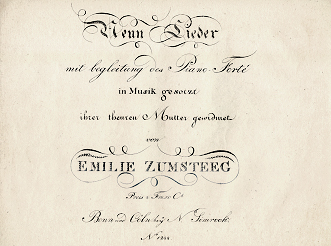 Neun Lieder
mit begleitung des Piano-Forté
in Musik gesetzt
ihrer theuren Mutter gewidmet
von
EMILIE ZUMSTEEG
Preis 2 Francs
Bonn und Cöln bey N. Simrock.
Nº